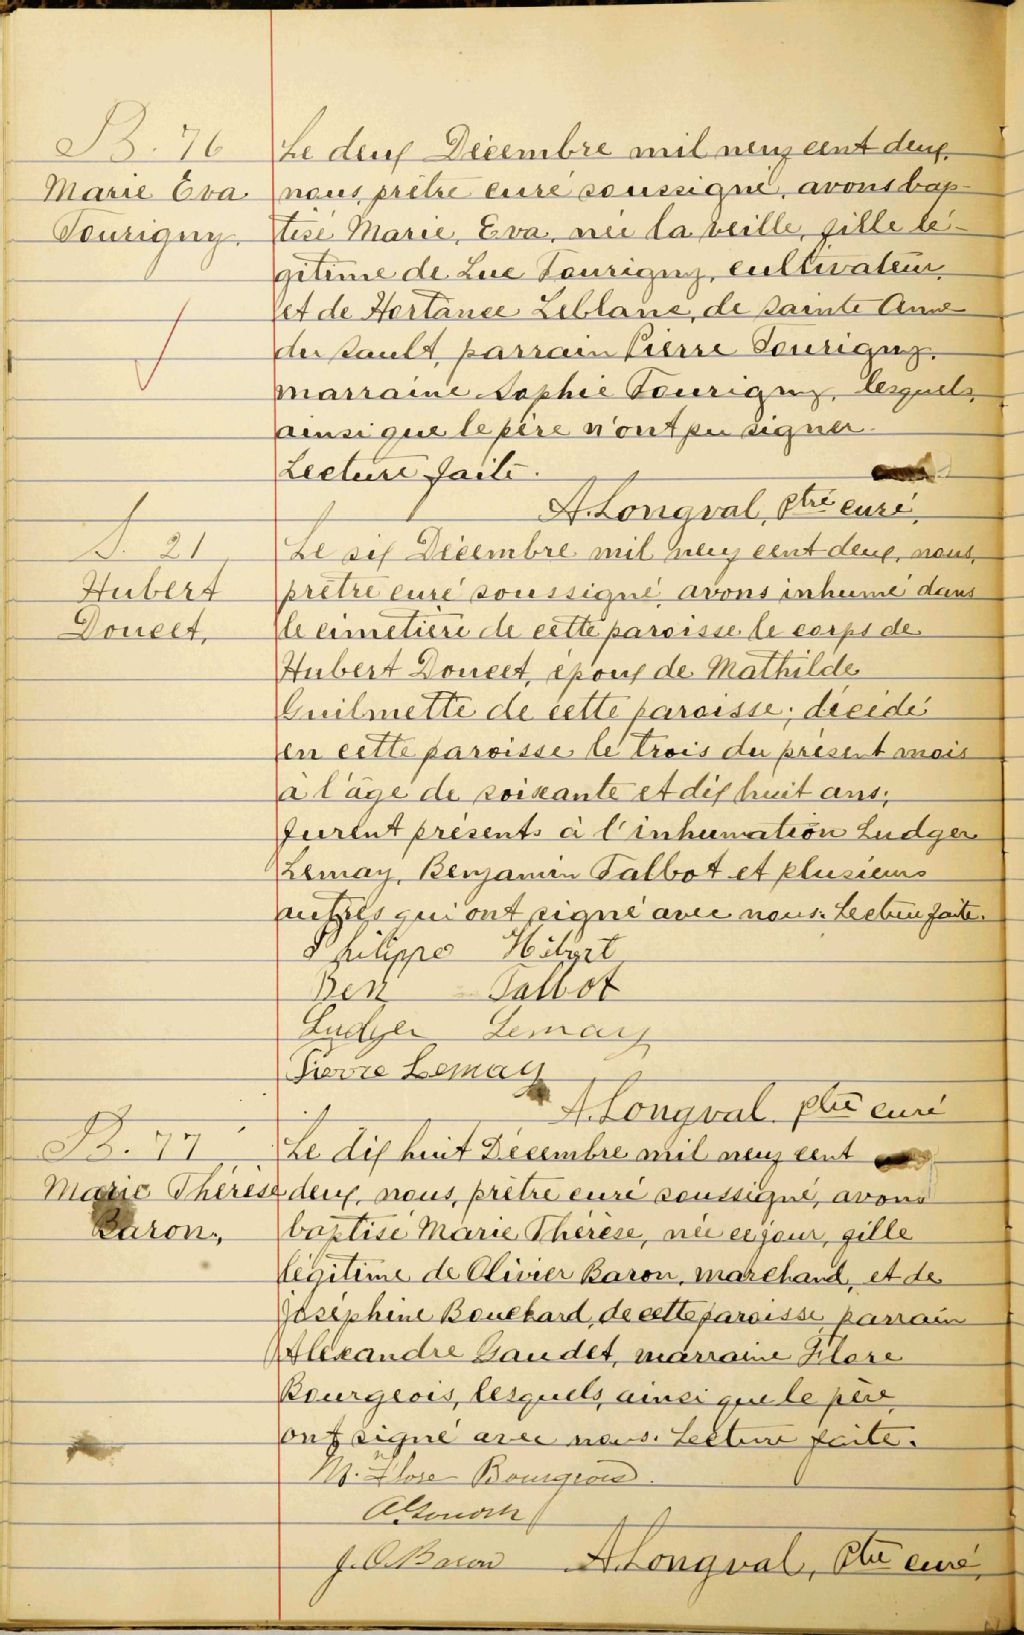 B. 76
Marie Eva
Tourigny.
Le deux Décembre mil neuf cent deux,
nous, prêtre curé soussigné, avons bap-
tisé Marie, Eva, née la veille, fille lé-
gitime de Luc Tourigny, cultivateur,
et de Hortance Leblanc, de Sainte Anne
du Sault, parrain Pierre Tourigny,
marraine Sophie Tourigny, lesquels,
ainsi que le père n'ont pu signer.
Lecture faite.
A. Longval, Ptre curé,
S. 21
Hubert
Doucet,
Le six Décembre mil neuf cent deux, nous,
prêtre curé soussigné, avons inhumé dans
le cimetière de cette paroisse le corps de
Hubert Doucet, époux de Mathilde
Guilmette de cette paroisse; décédé
en cette paroisse le trois du présent mois
à l'âge de soixante et dix huit ans;
furent présents à l'inhumation Ludger
Lemay, Benjamin Talbot et plusieurs
autres qui ont signé avec nous. Lecture faite.
Philippe Hébert
Ben Talbot
Ludger Lemay
Pierre Lemay
A. Longval Ptre curé
B. 77
Marie Thérèse
Baron,
Le dix huit Décembre mil neuf cent
deux, nous, prêtre curé soussigné, avons
baptisé Marie Thérèse, née ce jour, fille
légitime de Olivier Baron, marchand, et de
Joséphine Bouchard, de cette paroisse, parrain
Alexandre Gaudet, marraine Flore
Bourgeois, lesquels, ainsi que le père,
ont signé avec nous. Lecture faite.
M. Flore Bourgeois.
J. O. Baron
A. Longval, Ptre curé,